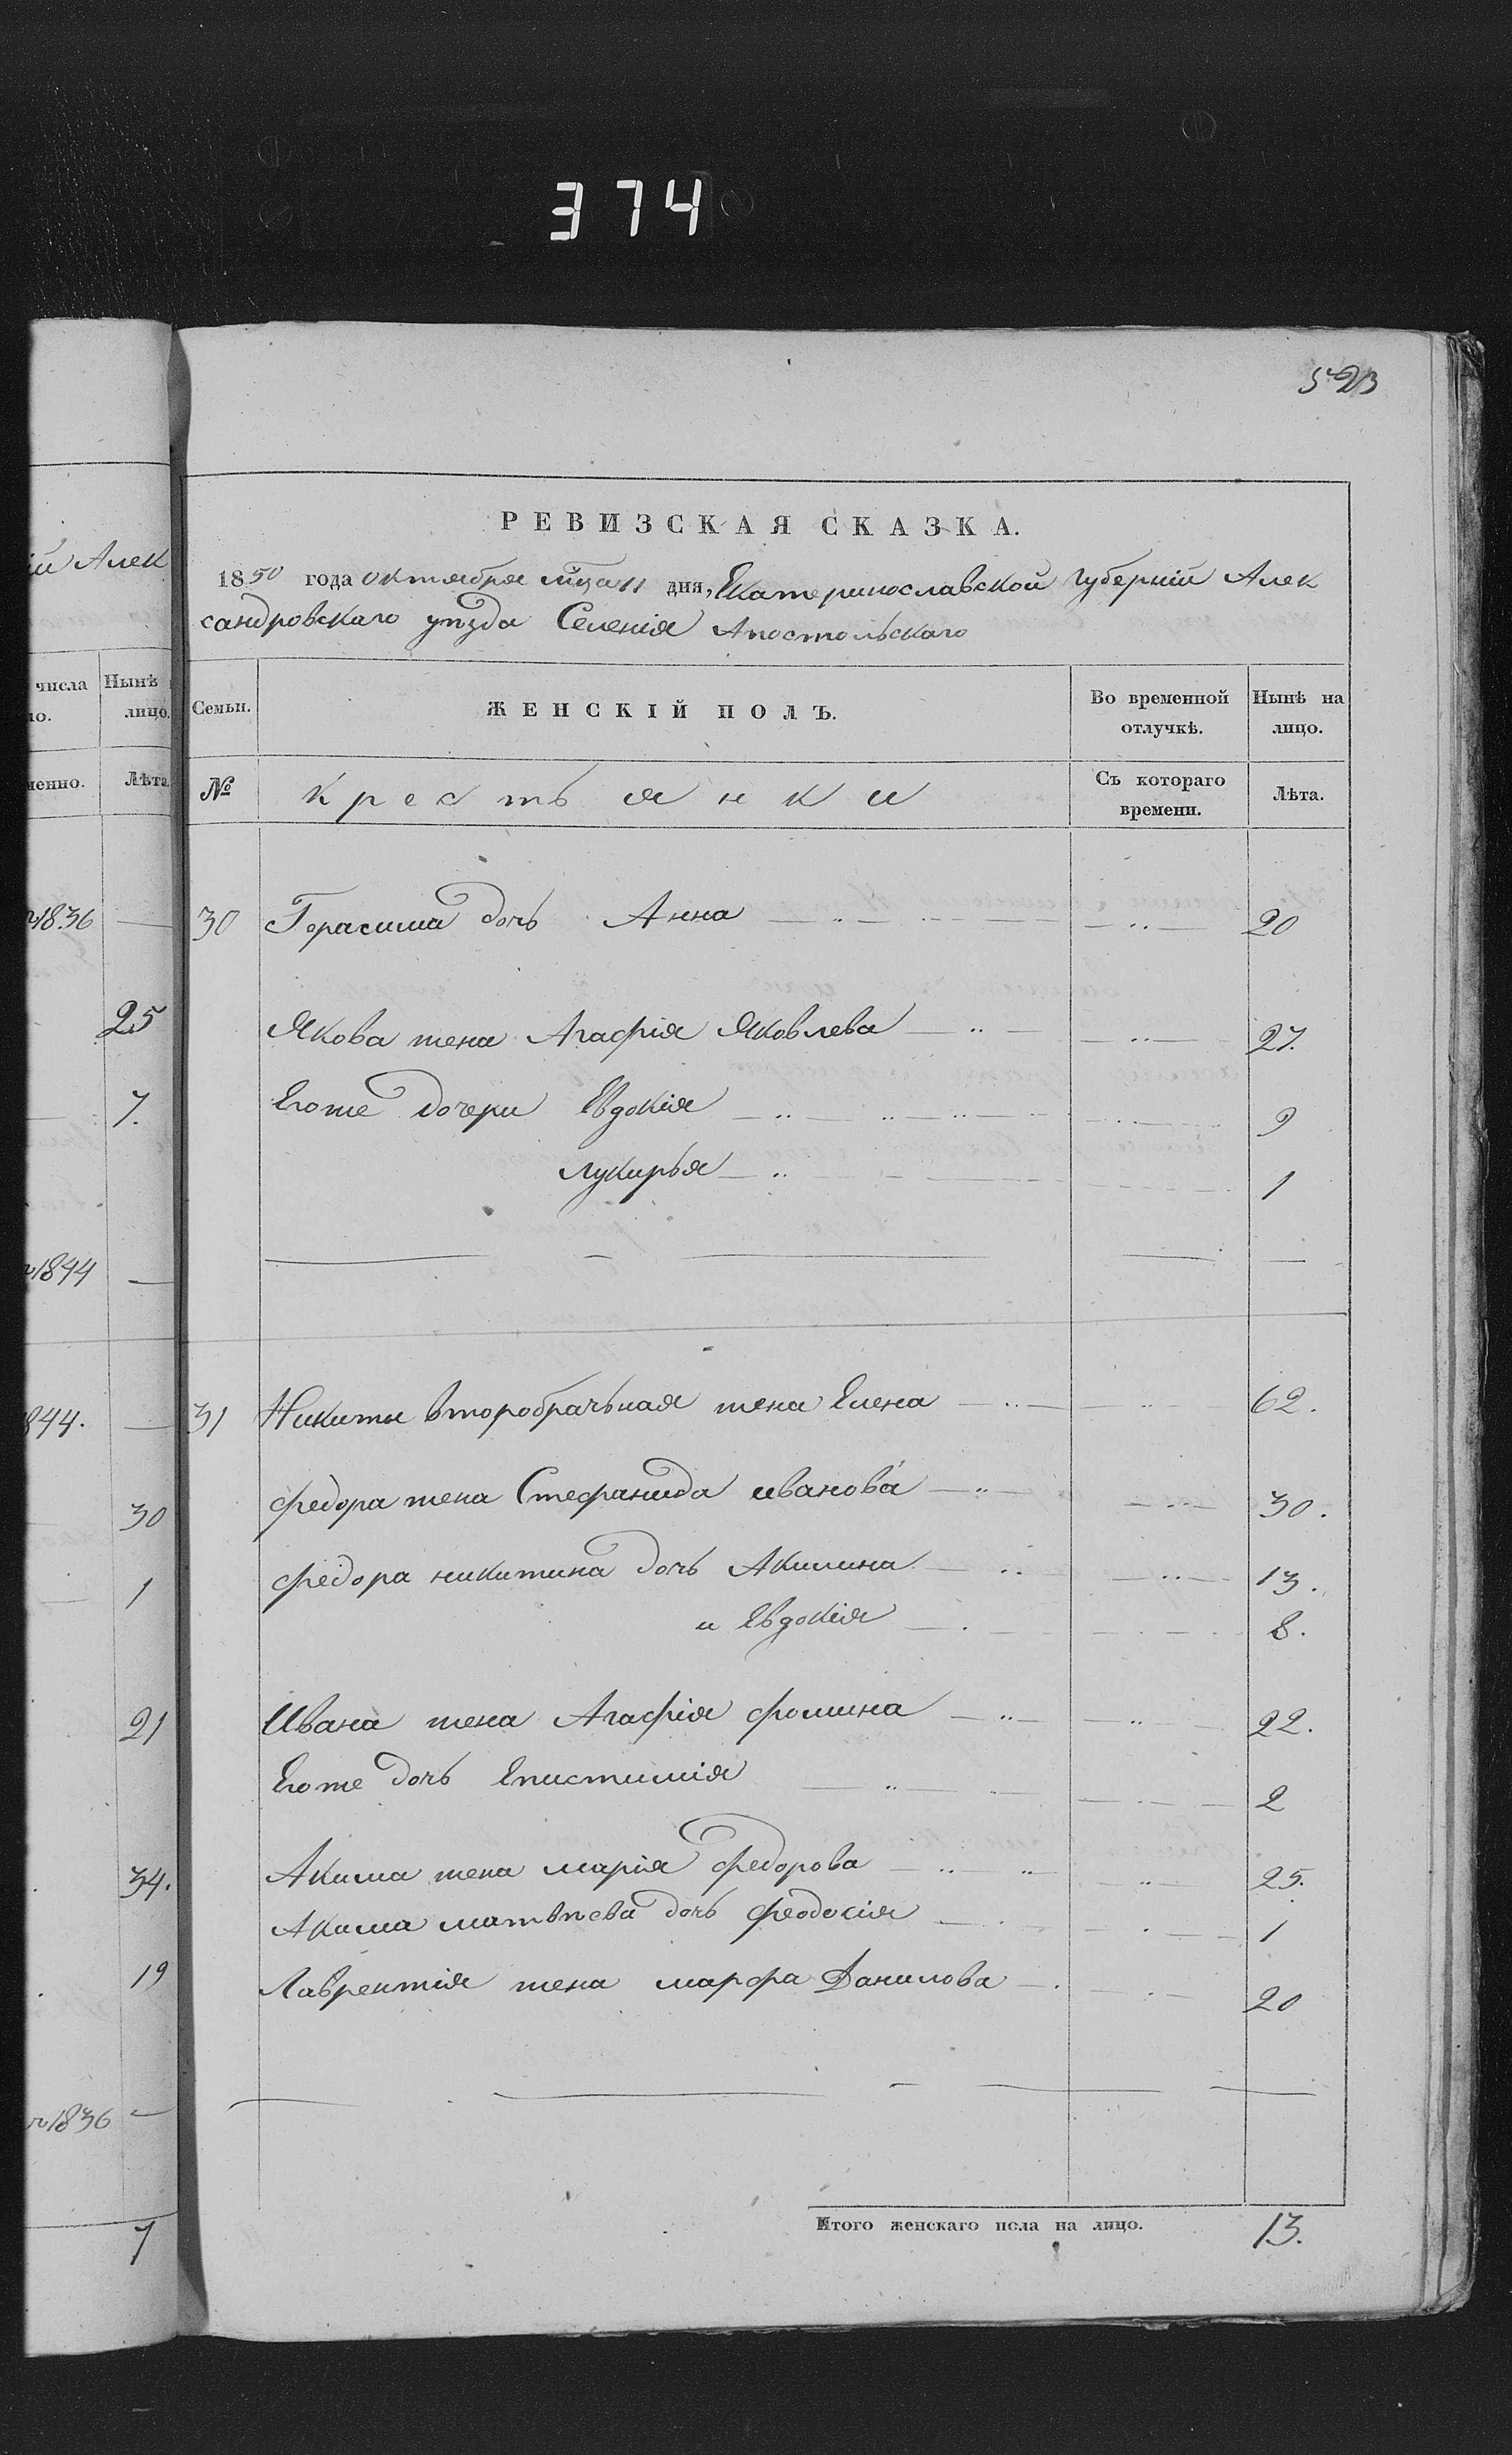 374
523
ій Алек
числа Нынѣ
ло. лицо.
менно. Лѣта
1836 —
25
7.
1844 —
844. —
30
1
21
34.
19
1836 —
7
РЕВИЗСКАЯ СКАЗКА.
1850 года октября мца 11 дня, Екатеринославской губерніи Алек
сандровскаго уѣзда Селенія Апостольскаго
Семьи. ЖЕНСКІЙ ПОЛЪ. Во временной отлучкѣ. Нынѣ на лицо.
№ крестьянки Съ котораго времени. Лѣта.
30 Герасима дочь Анна 20
Якова жена Агафія Яковлева 27.
Егоже дочери Евдокія 9
Лукирья 1
31 Никиты второбрачьная жена Елена 62.
Федора жена Стефанида иванова 30.
Федора никитина дочь Акилина 13.
и Евдокія 8.
Ивана жена Агафія фомина 22.
Егоже дочь Епистимія 2
Акима жена марія федорова 25.
Акима матвѣева дочь феодосія 1
Лаврентія жена марфа Данилова 20
Итого женскаго пола на лицо. 13.